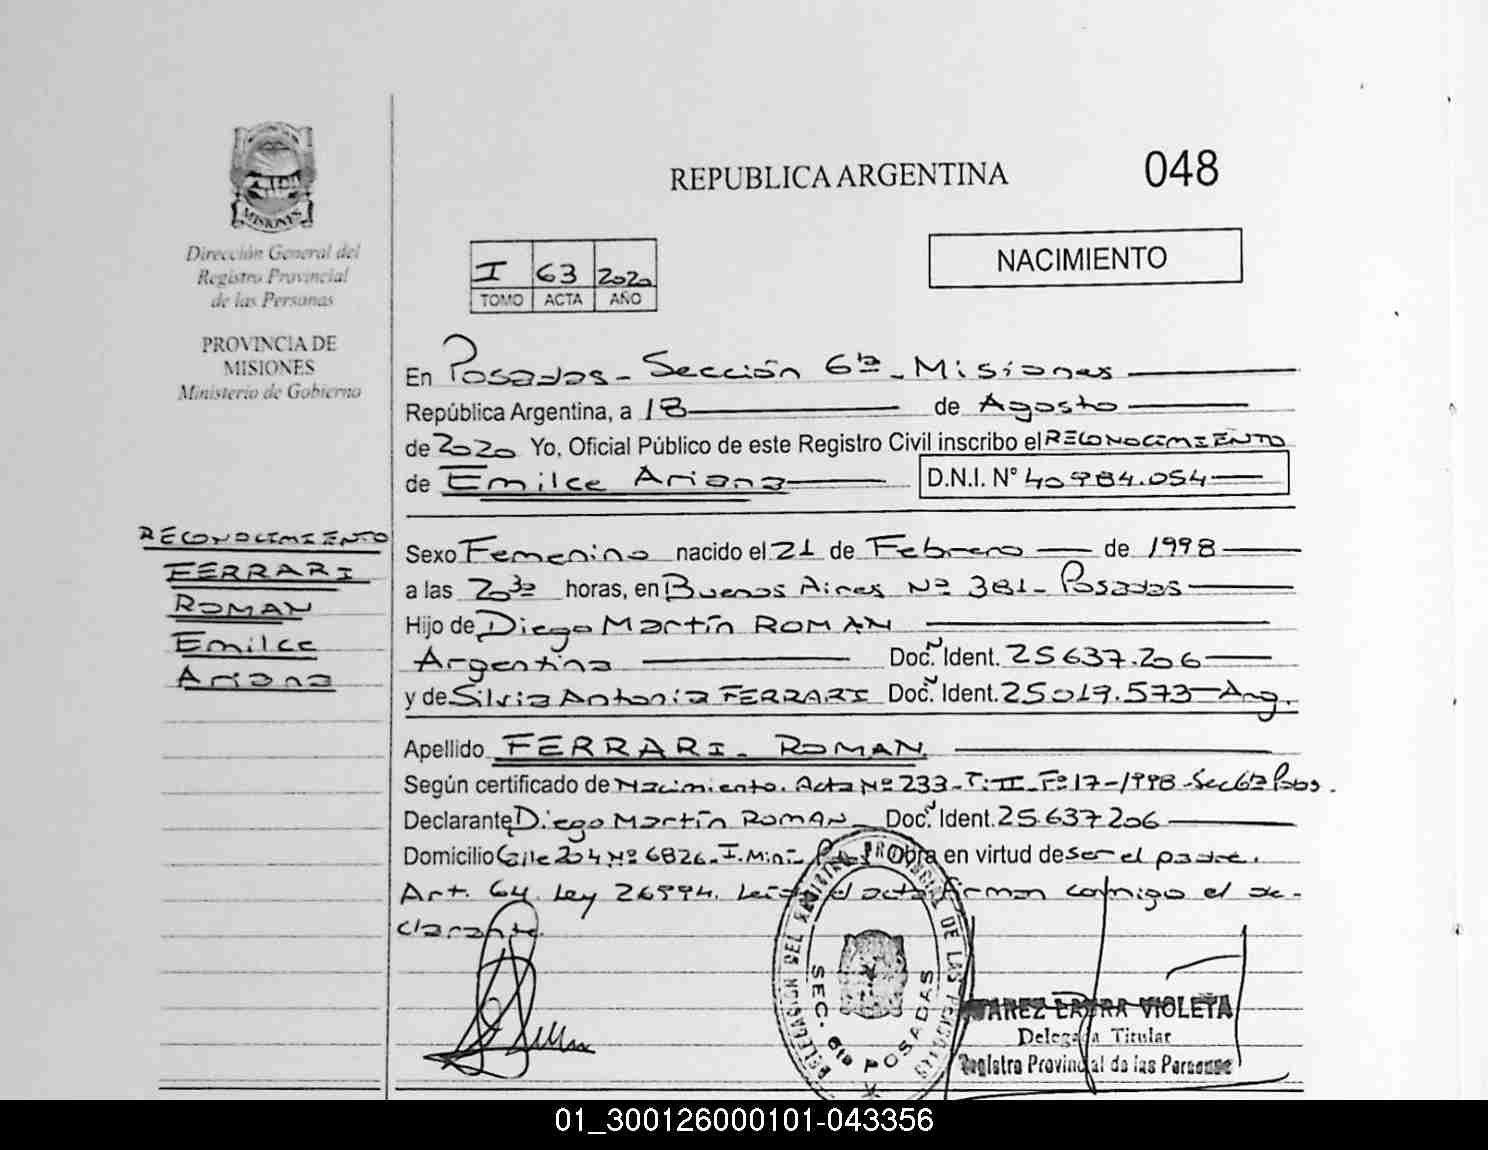 MISIONES
Dirección General del
Registro Provincial
de las Personas
PROVINCIA DE
MISIONES
Ministerio de Gobierno
REPUBLICA ARGENTINA
048
I 63 2020
TOMO ACTA AÑO
NACIMIENTO
En Posadas - Sección 6ta - Misiones
República Argentina, a 18 de Agosto
de 2020 Yo, Oficial Público de este Registro Civil inscribo el RECONOCIMIENTO
de Emilce Ariana D.N.I. Nº 40.984.054
RECONOCIMIENTO
FERRARI
ROMAN
Emilce
Ariana
Sexo Femenino nacido el 21 de Febrero de 1998
a las 20³⁰ horas, en Buenos Aires Nº 381 - Posadas
Hijo de Diego Martín ROMAN
Argentina Doc. Ident. 25.637.206
y de Silvia Antonia FERRARI Doc. Ident. 25.019.573 - Arg.
Apellido FERRARI - ROMAN
Según certificado de Nacimiento. Acta Nº 233 - T: II - Fº 17 - 1998 - Sec 6ta Pdas.
Declarante Diego Martín ROMAN Doc. Ident. 25.637206
Domicilio Calle 204 Nº 6826 - I. Miní - Obra en virtud de ser el padre.
Art. 64. Ley 26994. Leída el acta firman conmigo el de-
clarante.
DELEGACION DEL REGISTRO PROVINCIAL DE LAS PERSONAS
SEC. 6ta POSADAS
LAURA VIOLETA
Delegada Titular
Registro Provincial de las Personas
01_300126000101-043356